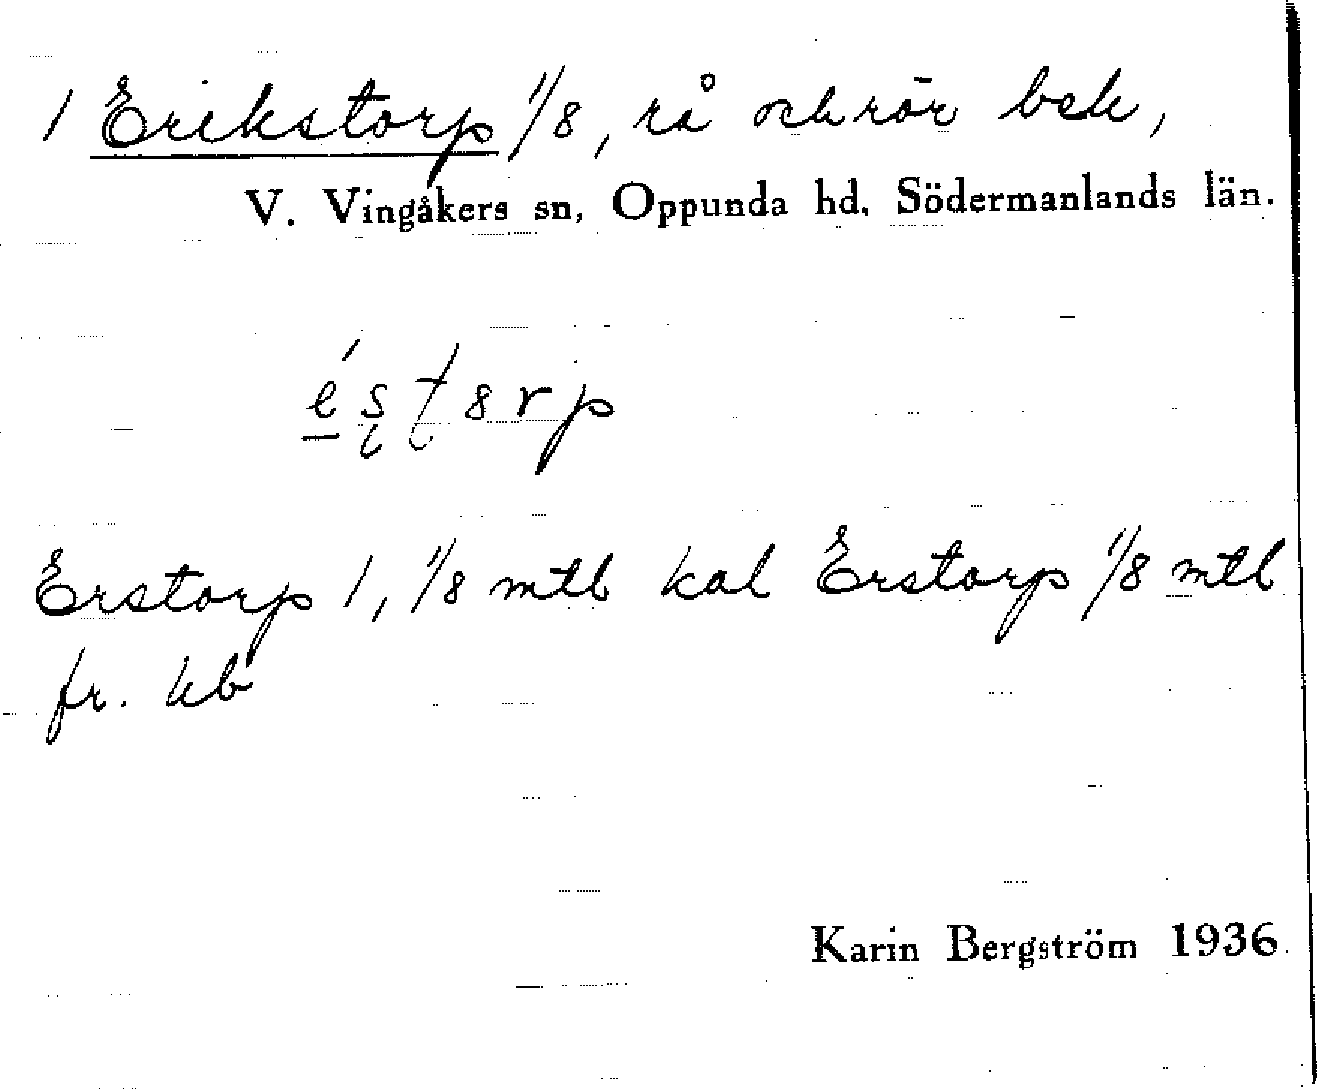 1 Erikstorp 1/8, rå och rör bek,
V. Vingåkers sn, Oppunda hd, Södermanlands län.
éstɜrp
Erstorp 1, 1/8 mtl kal Erstorp 1/8 mtl
fr. kb
Karin Bergström 1936